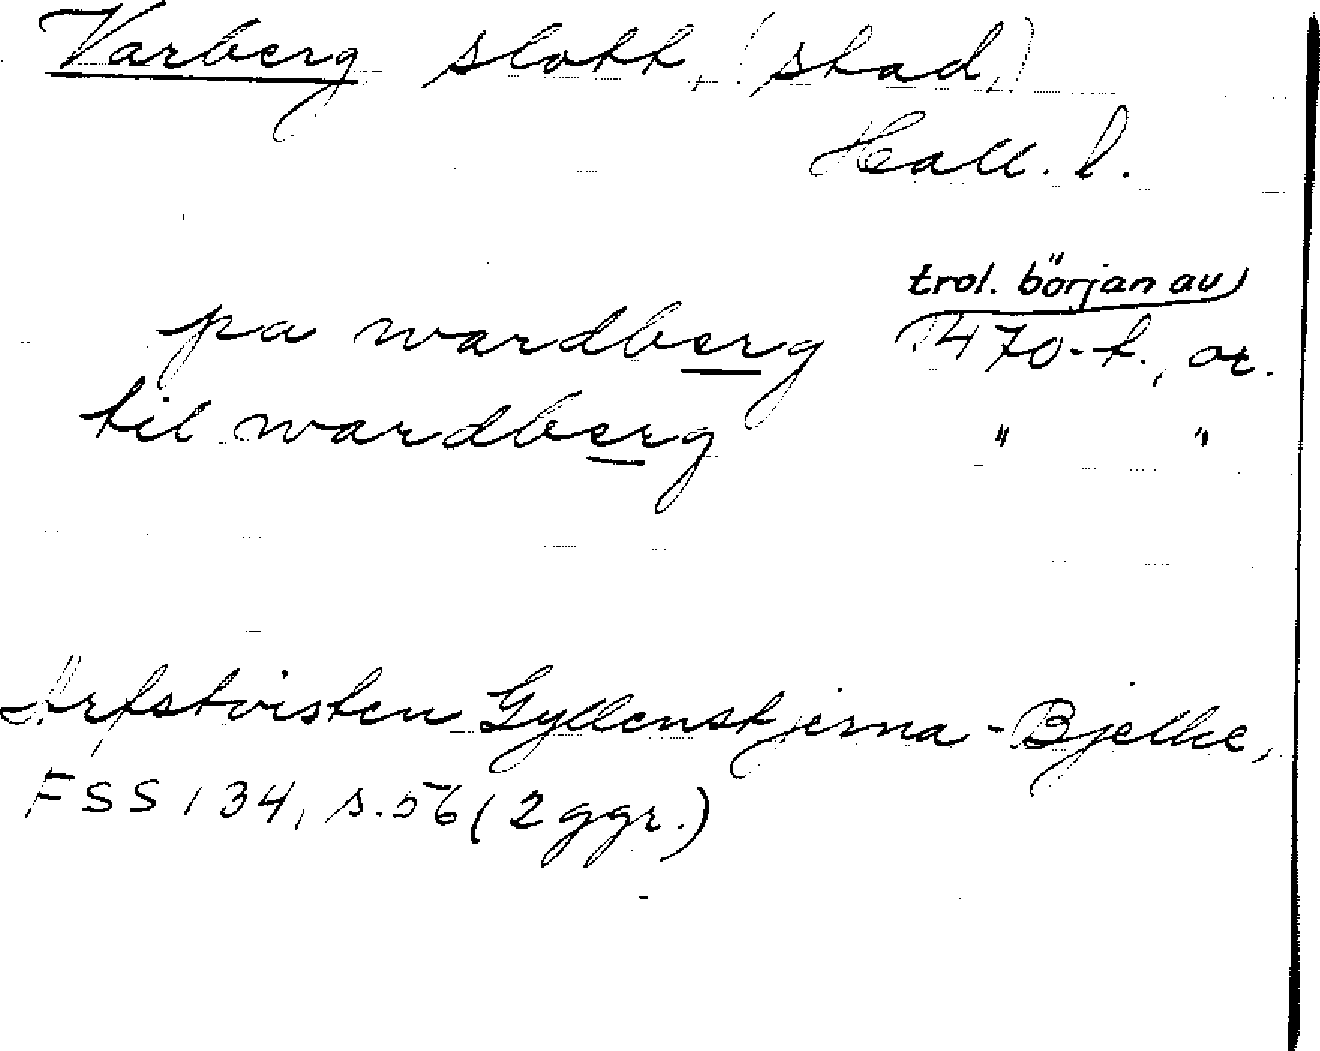 Varberg slott, (stad,)
Hall. l.
trol. början av
pa wardberg 1470-t., or.
til wardberg " "
Arfstvisten Gyllenstjerna-Bjelke,
FSS 134, s.56 (2 ggr.)